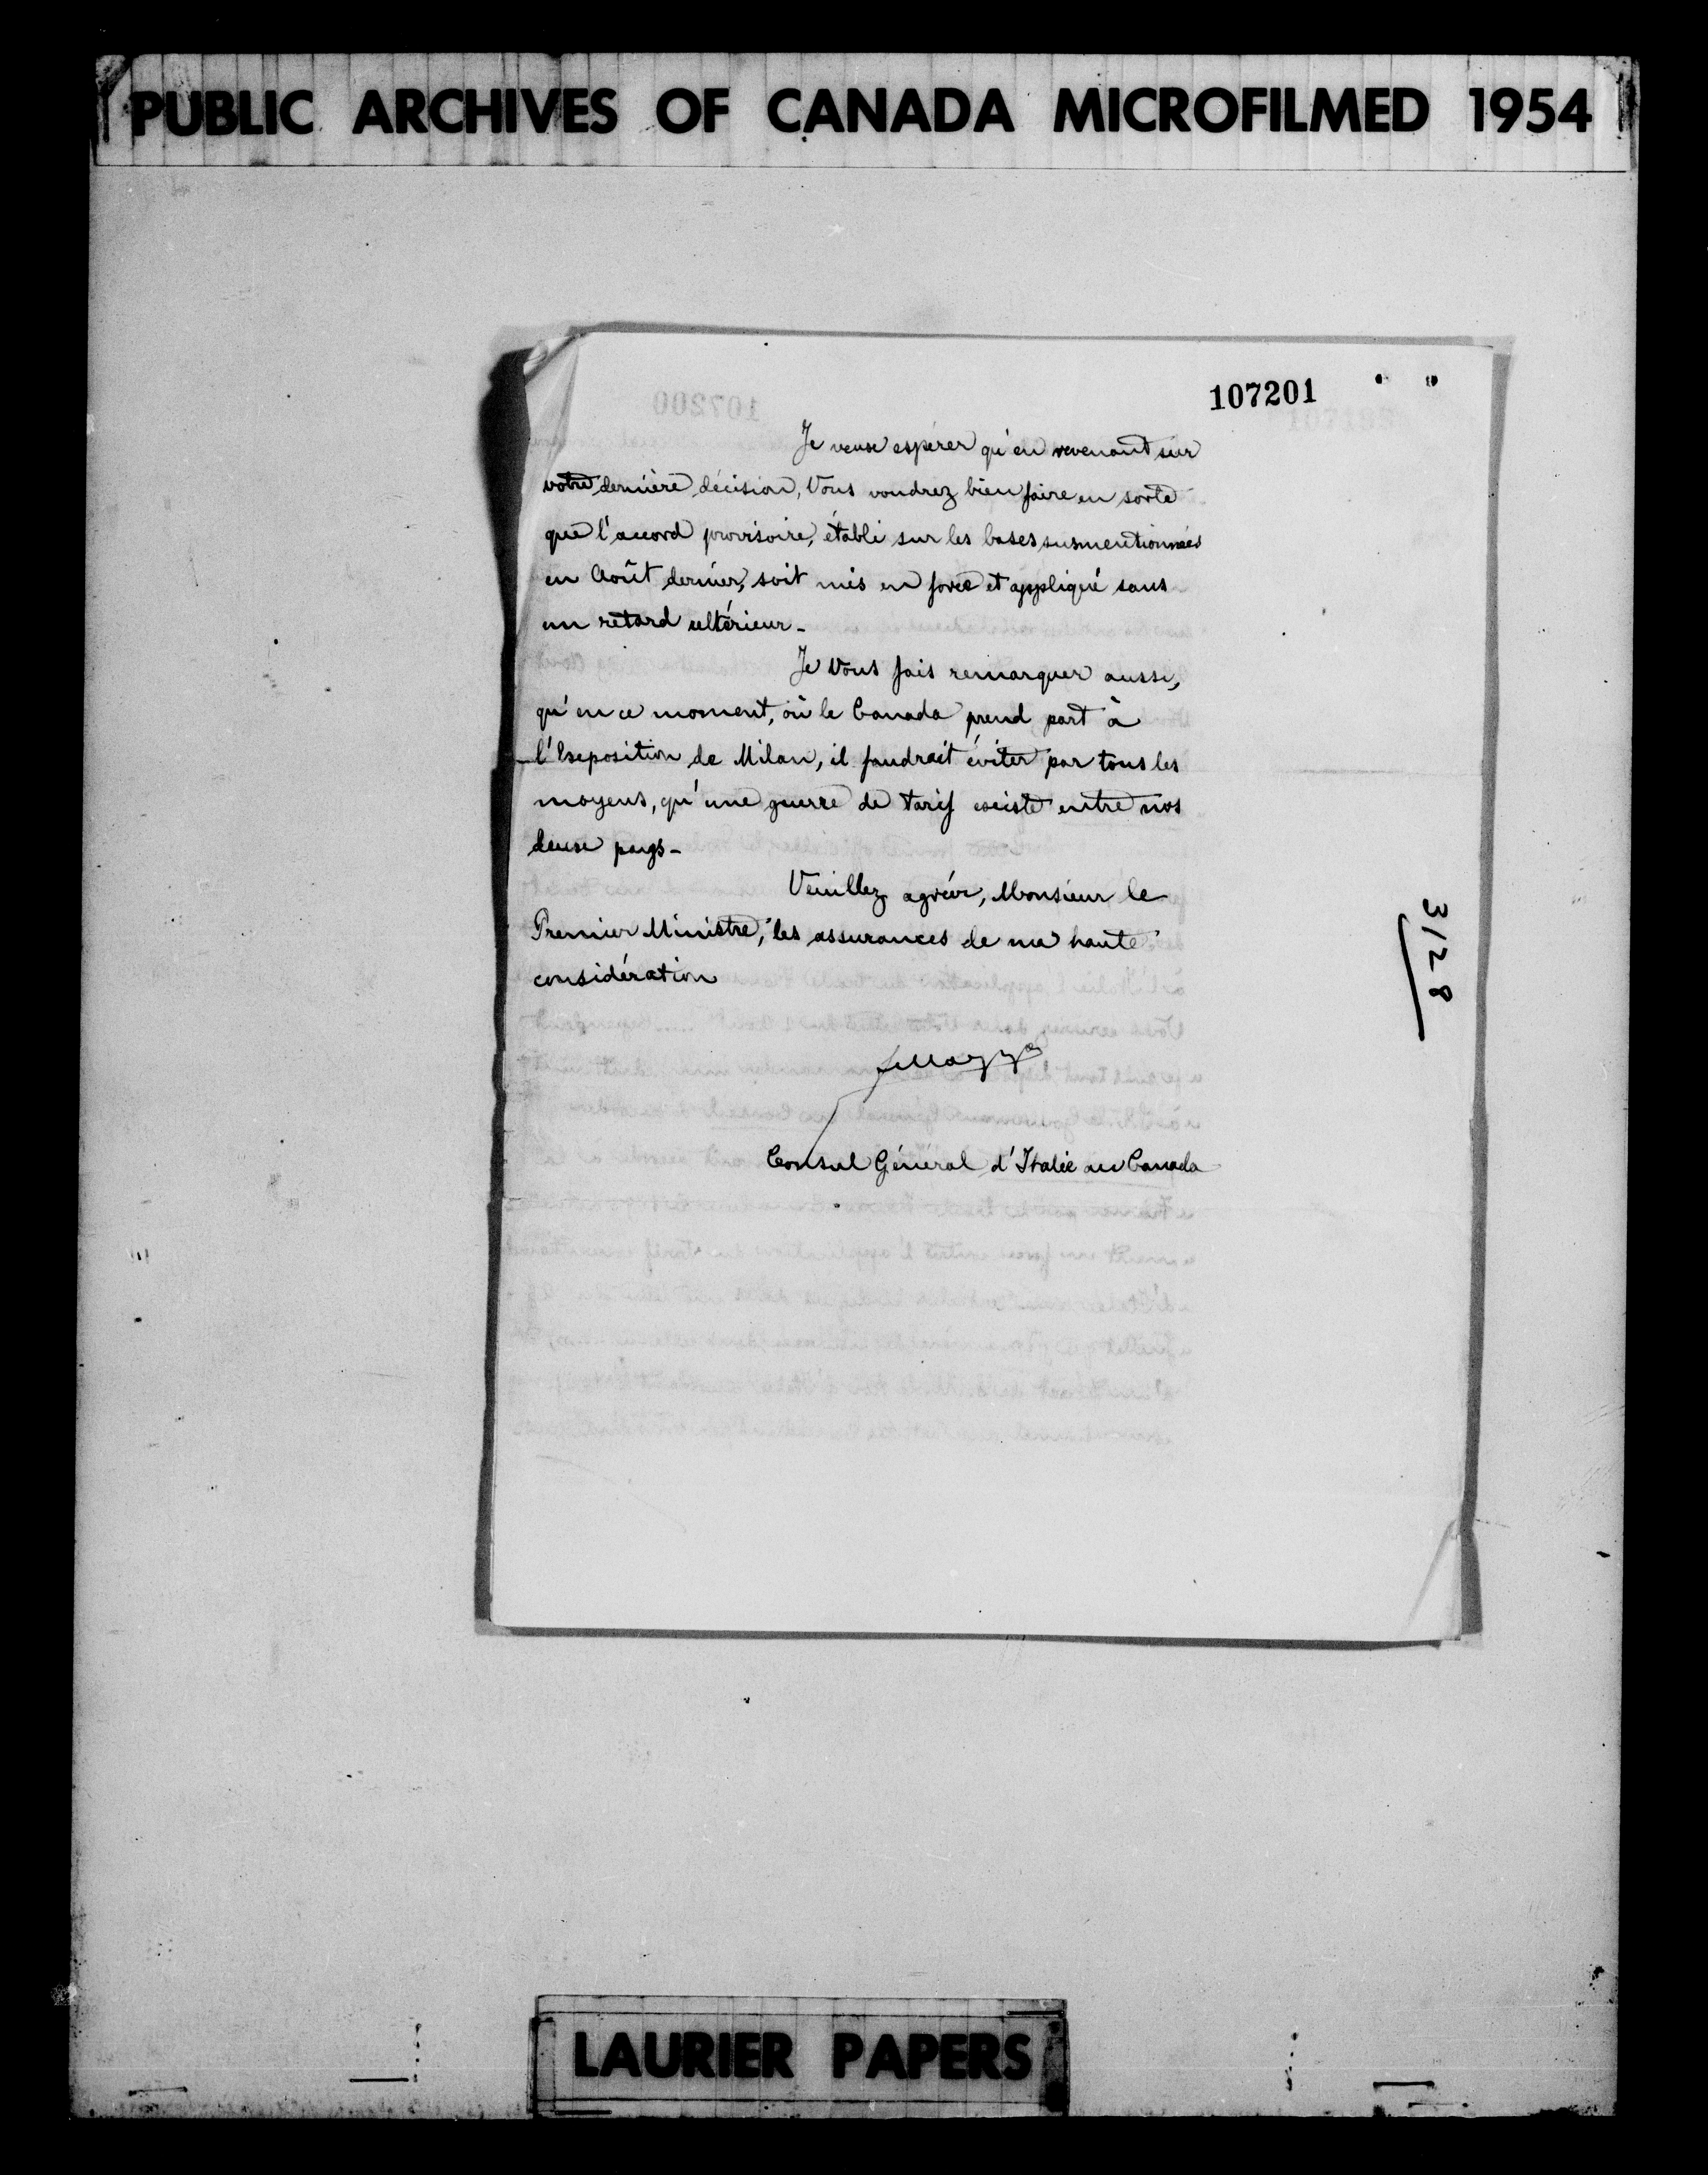 PUBLIC ARCHIVES OF CANADA MICROFILMED 1954
107201
Je veux espérer qu'en revenant sur
votre dernière décision, Vous voudrez bien faire en sorte
que l'accord provisoire, établi sur les bases susmentionnées
en Août dernier, soit mis en force et appliqué sans
un retard ultérieur_
Je Vous fais remarquer aussi,
qu'en ce moment, où le Canada prend part à
l'Exposition de Milan, il faudrait éviter par tous les
moyens, qu'une guerre de tarif existe entre nos
deux pays_
Veuillez agréer, Monsieur le
Premier Ministre, les assurances de ma haute
considération
Consul Général d'Italie au Canada
3128
LAURIER PAPERS